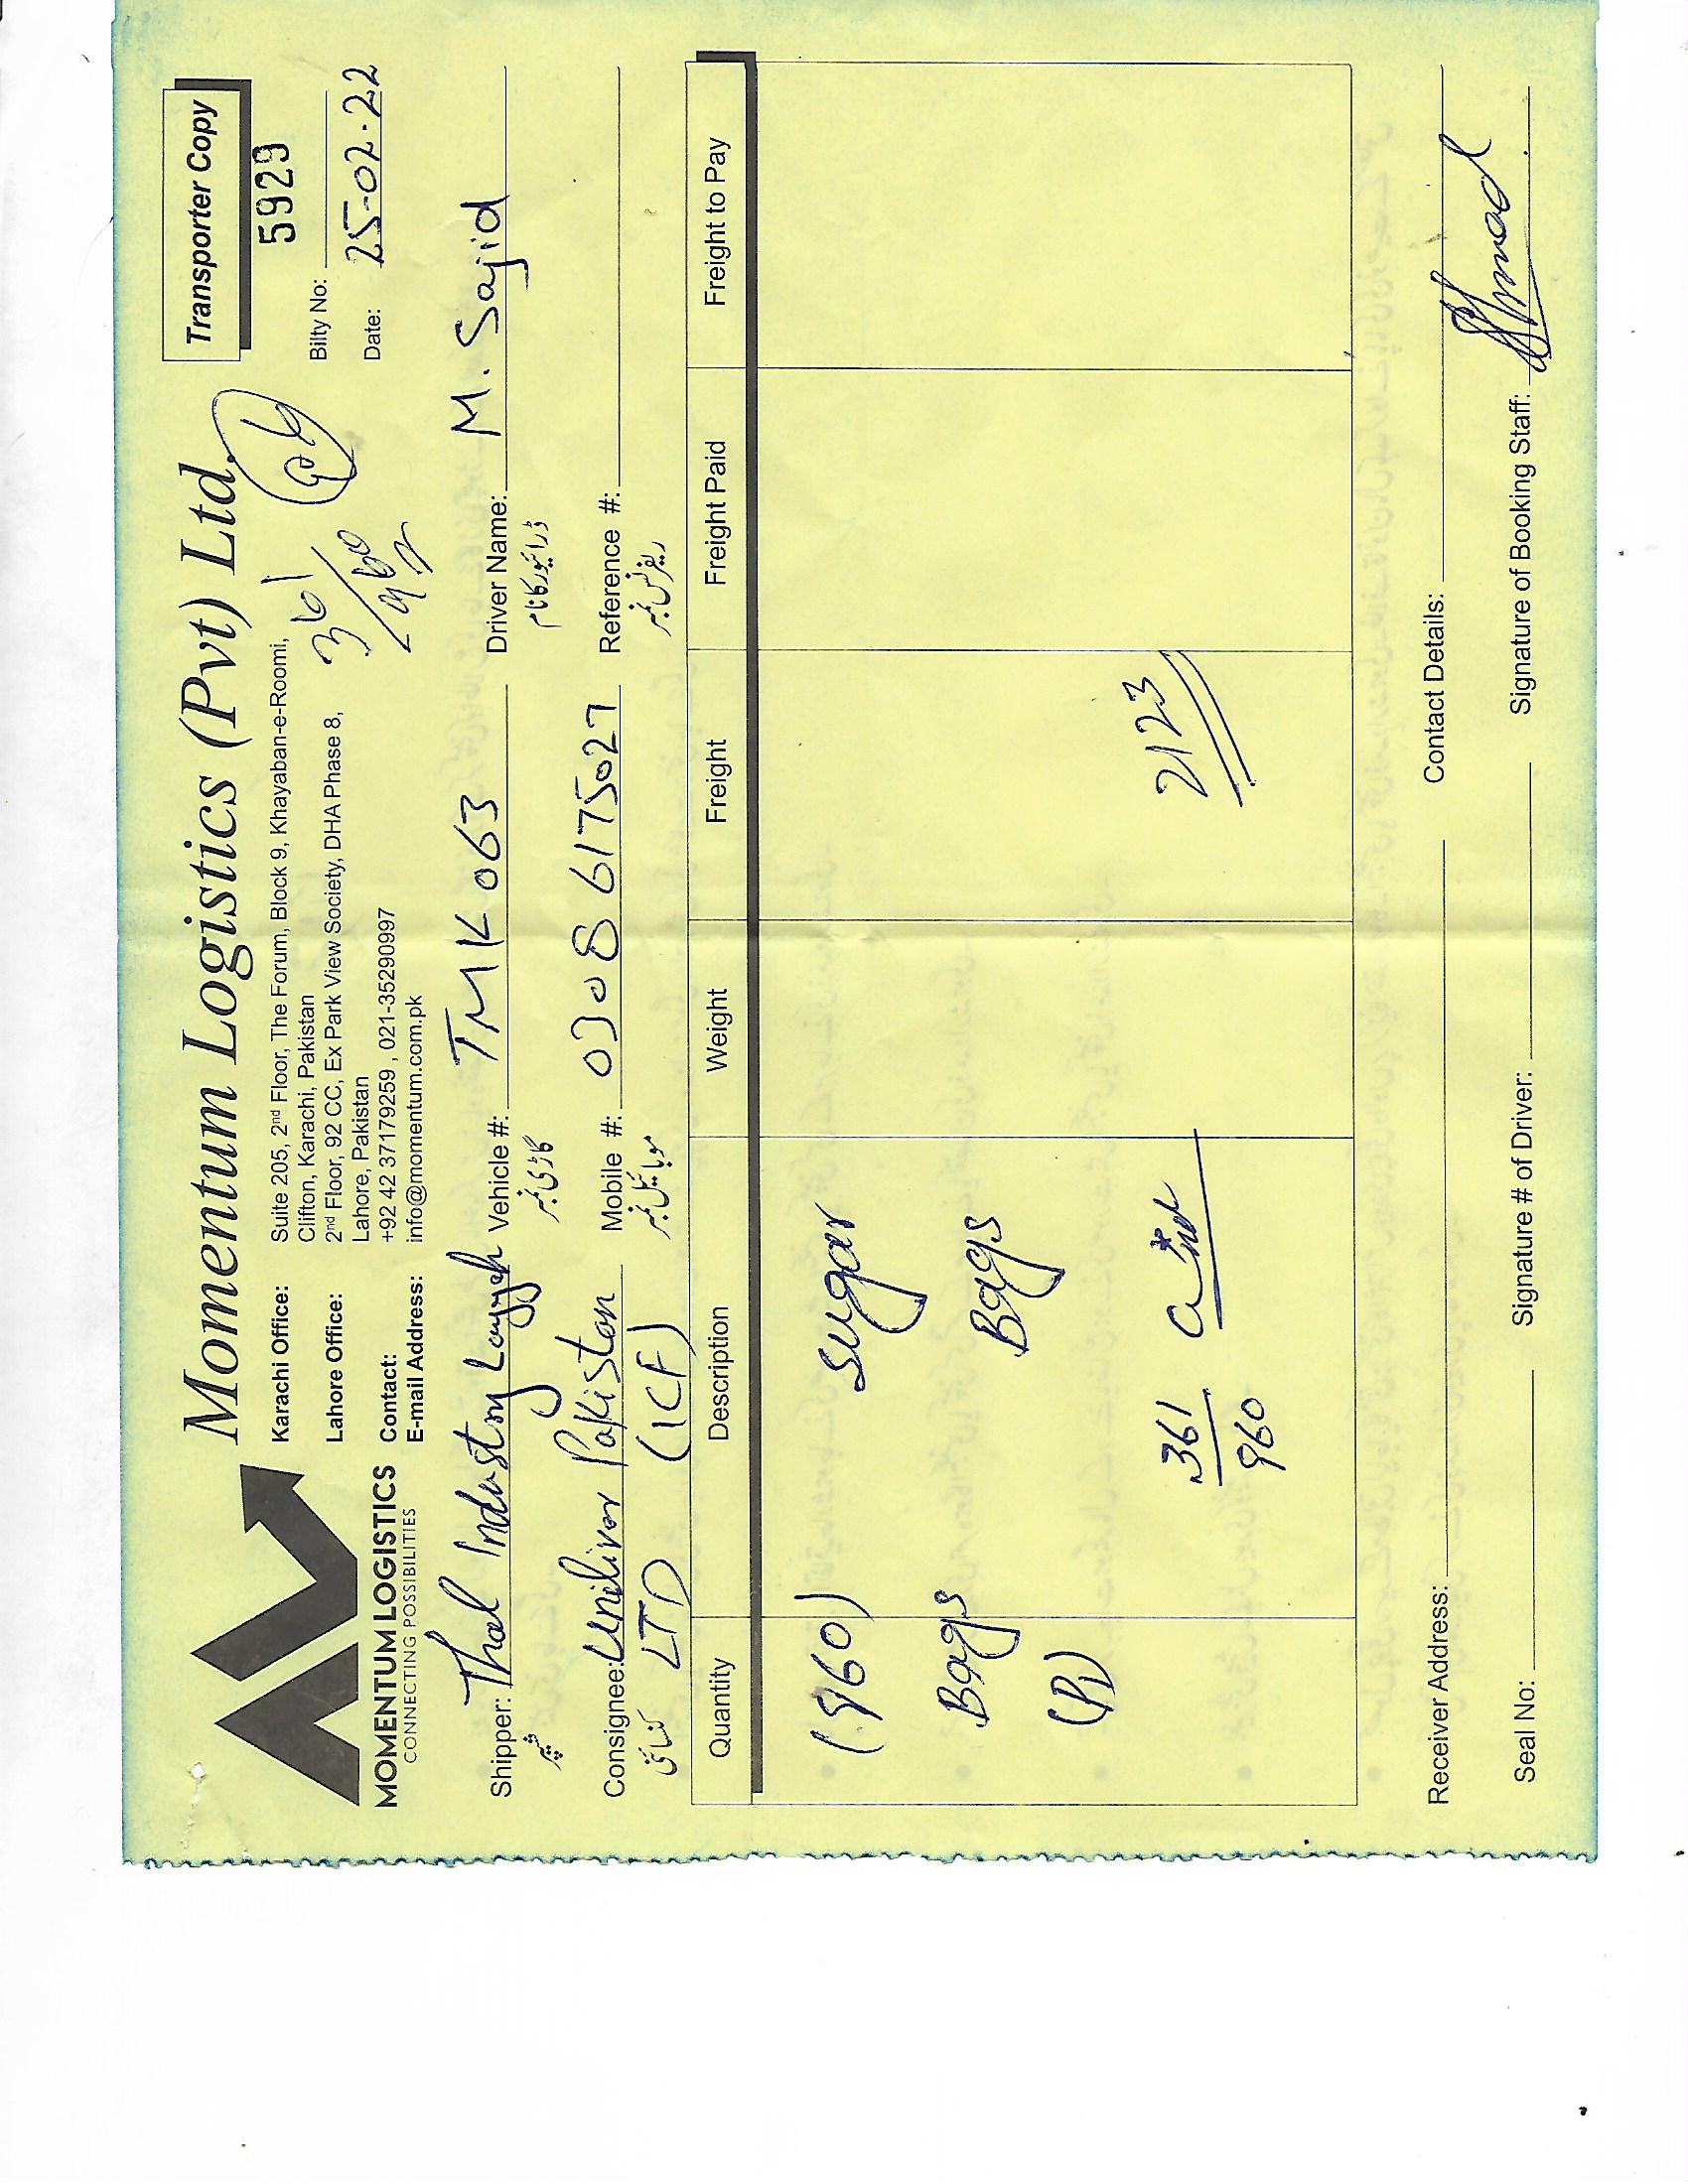 Momentum Logistics (Pvt) Ltd.
Transporter Copy
MOMENTUM LOGISTICS
CONNECTING POSSIBILITIES
Karachi Office: Suite 205, 2nd Floor, The Forum, Block 9, Khayaban-e-Roomi,
Clifton, Karachi, Pakistan
Lahore Office: 2nd Floor, 92 CC, Ex Park View Society, DHA Phase 8,
Lahore, Pakistan
Contact: +92 42 37179259 , 021-35290997
E-mail Address: info@momentum.com.pk
361
960
5929
Bilty No:
Date: 25-02-22
Shipper: Thal Industry Layyah Vehicle #: TMK 063 Driver Name: M. Sajid
شیپر گاڑی نمبر ڈرائیور کا نام
Consignee: Uniliver Pakistan Mobile #: 0308 6175027 Reference #:
کنسائنی LTD (ICF) موبائیل نمبر ریفرنس نمبر
Quantity Description Weight Freight Freight Paid Freight to Pay
(960) sugar
Bags Bags
361
960
2123
Receiver Address: Contact Details:
Seal No: Signature # of Driver: Signature of Booking Staff: Ahmad